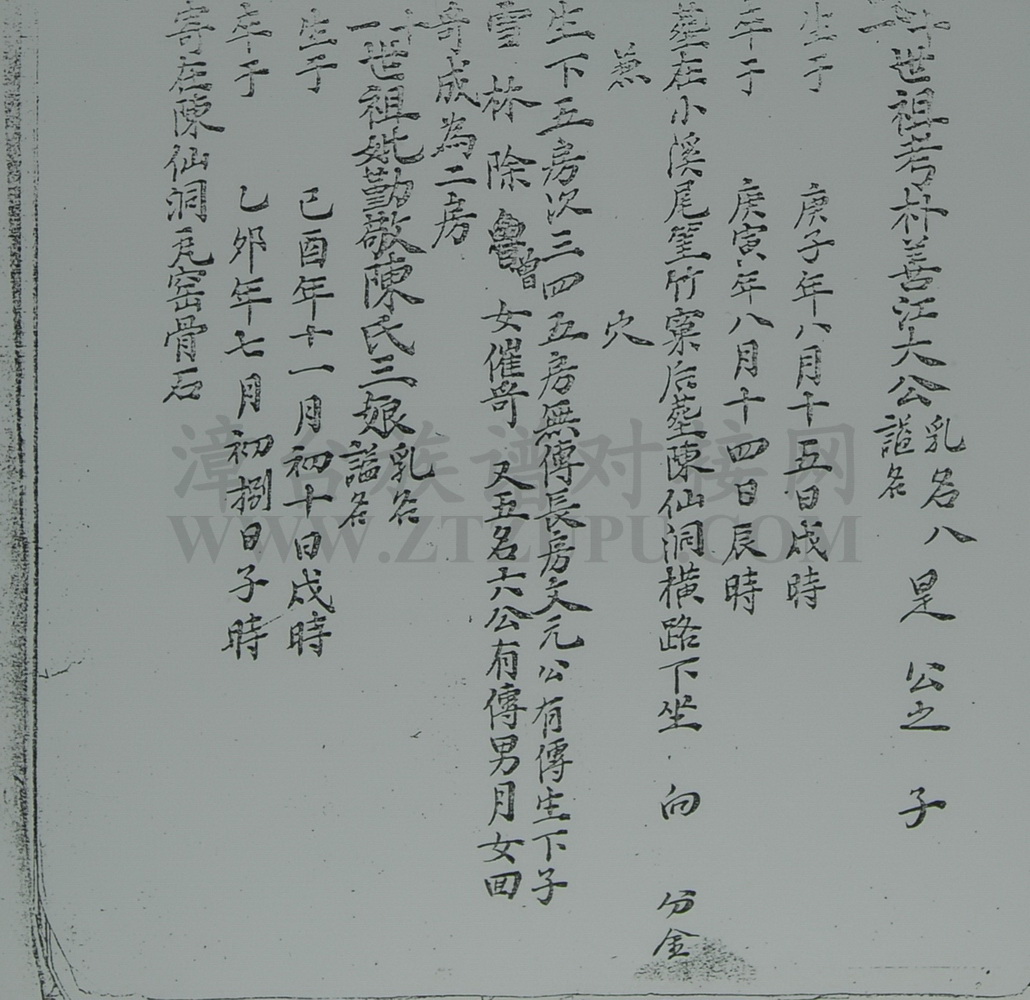 世祖考朴善江大公乳名八 是 公之 子
諡名
生于 庚子年八月十五日戌時
卒于 庚寅年八月十四日辰時
墓在小溪尾笙竹窠后墓陳仙洞橫路下坐 向 分金
兼 穴
生下五房次三四五房無傳長房文元公有傳生下子
雪林 除 曾 女催哥 又五名六公有傳男月女回
奇成為二房
一世祖妣勤敬陳氏三娘乳名
諡名
生于 己酉年十一月初十日戌時
卒于 乙卯年七月初捌日子時
寄在陳仙洞瓦窑骨石
漳台族谱对接网
WWW.ZTZUPU.COM